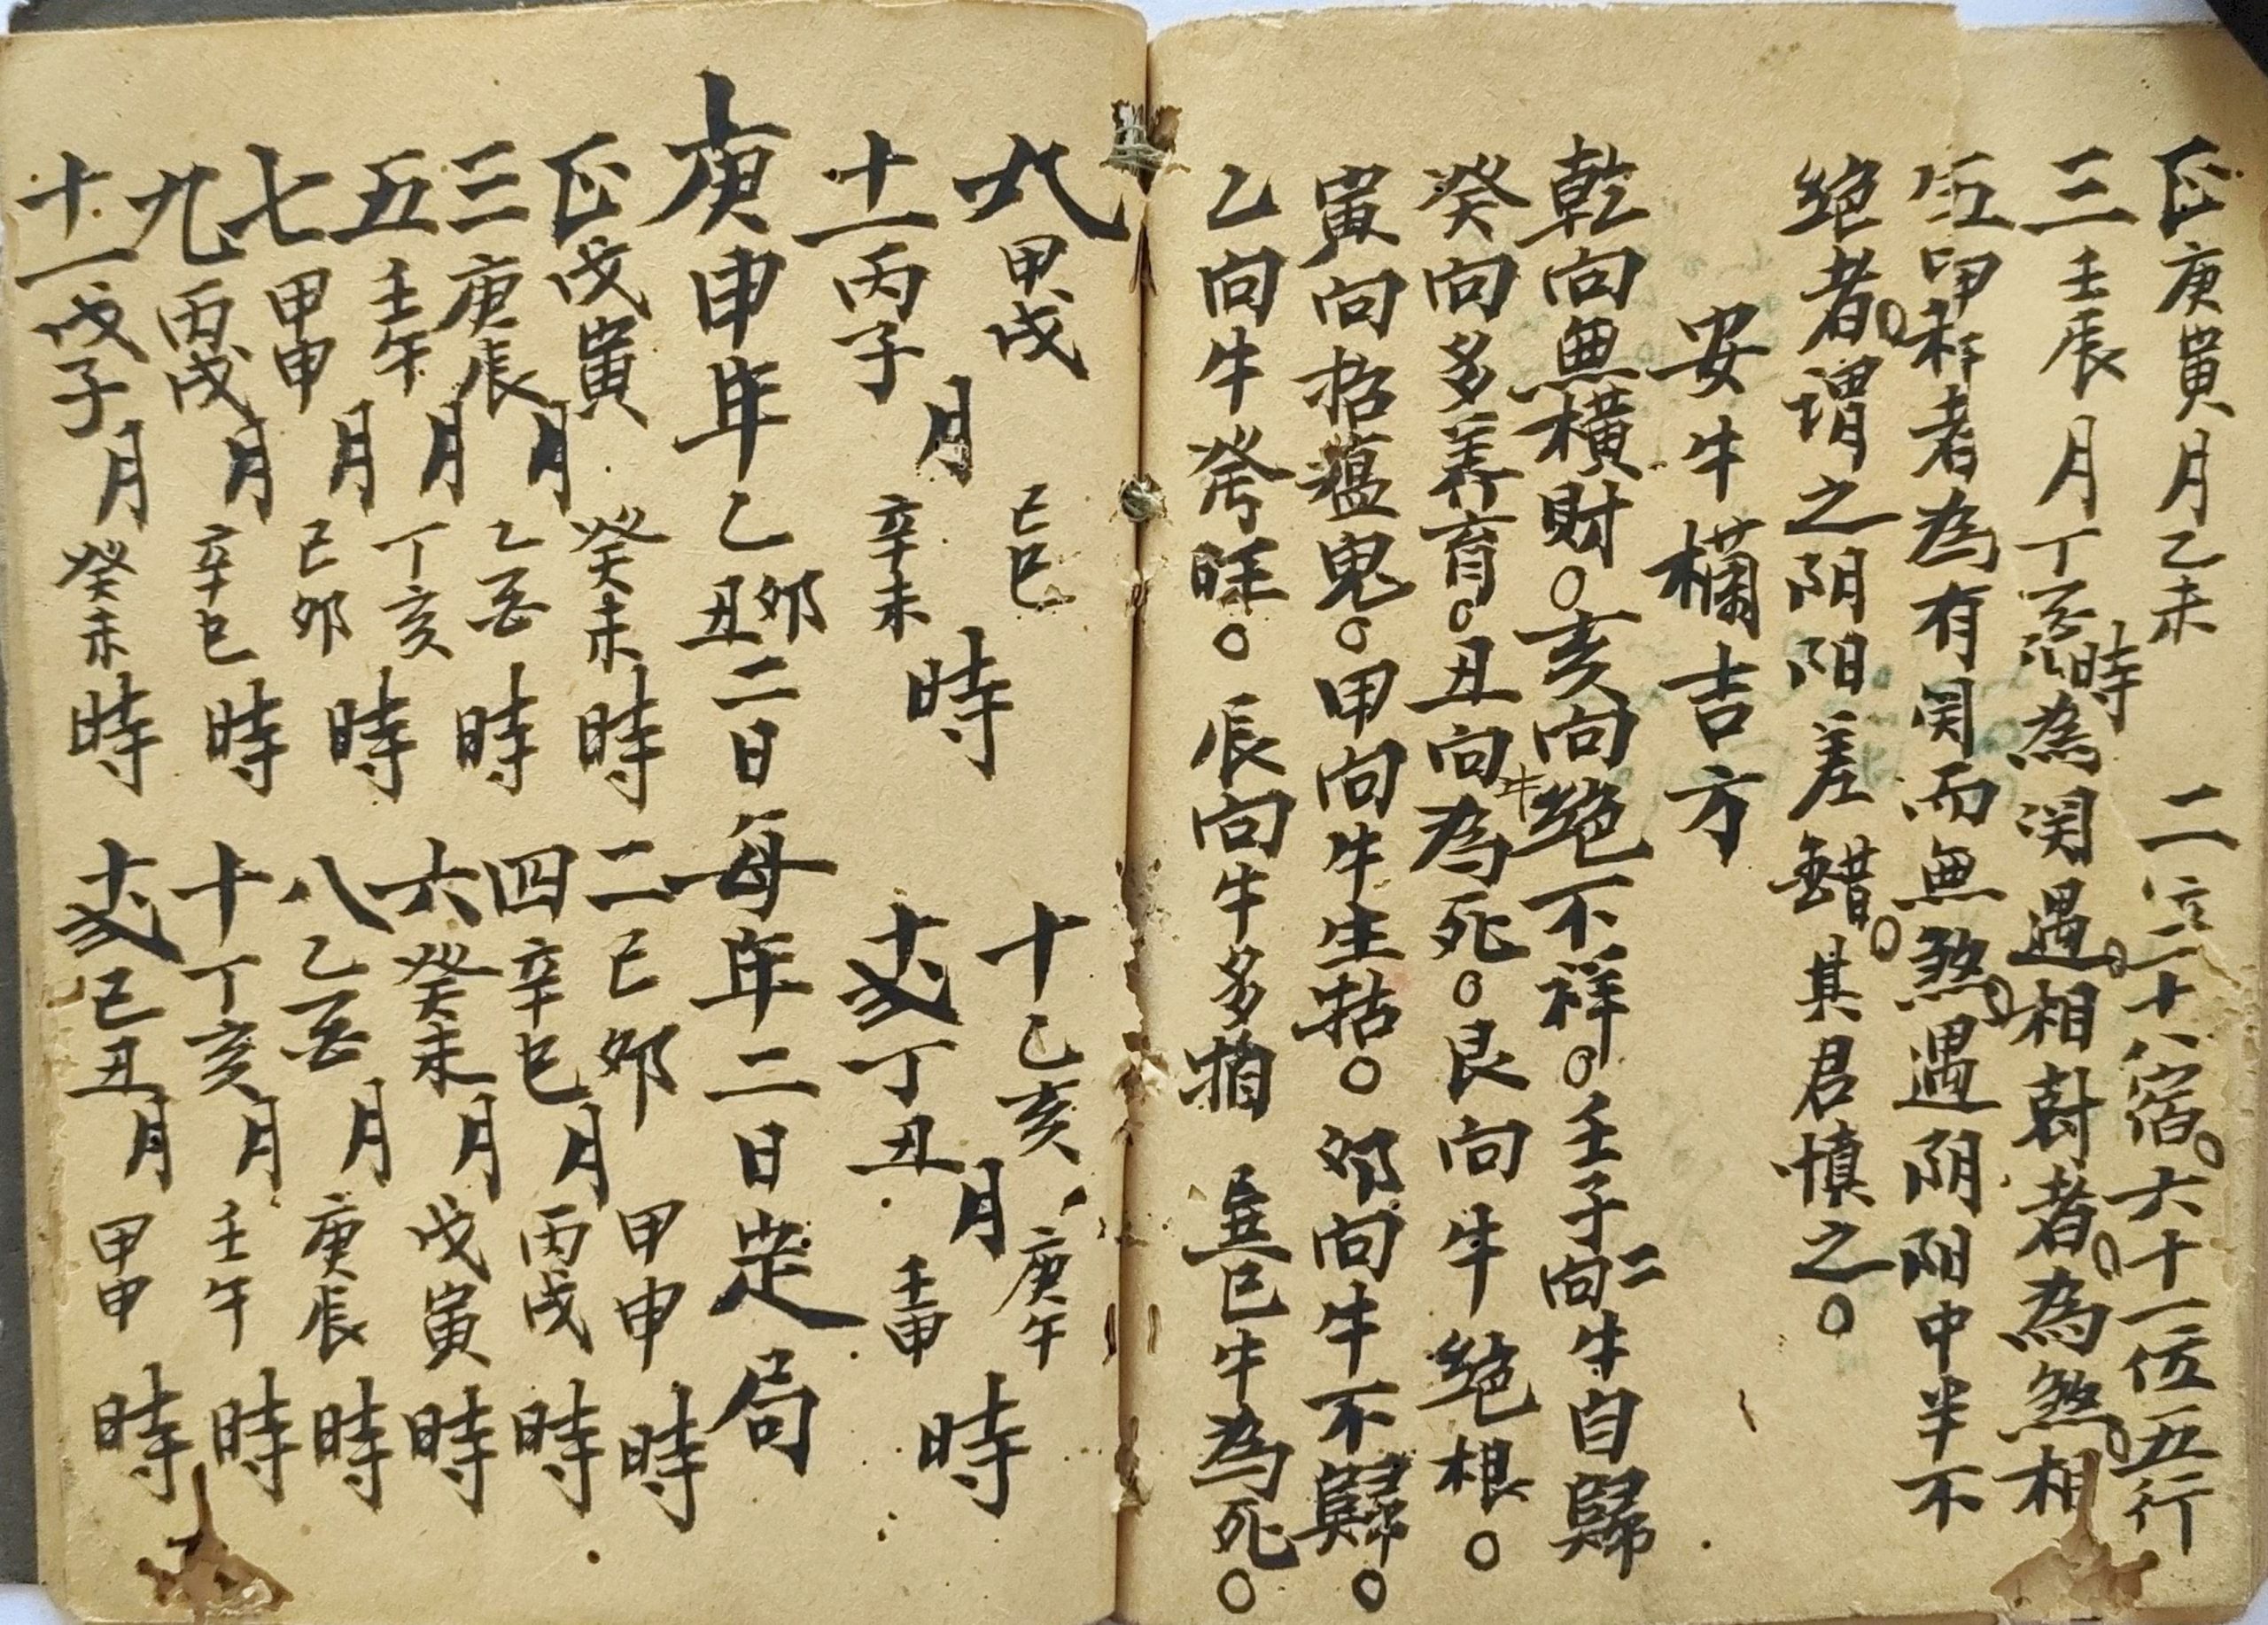 正庚寅月乙未 二 二十八宿。六十一位五行
三壬辰月丁 時 為関遇。相尅者。為煞。相
者為有関而無煞。遇阴阳中半不
绝者。谓之阴阳差錯。其君慎之。
安牛欄吉方
乾向無橫財。亥向绝不祥。壬子二向牛自歸
癸向多养育。丑向牛為死。艮向牛绝根。
寅向招瘟鬼。甲向牛生牯。卯向牛不歸。
乙向牛發旺。辰向牛多 巽巳牛為死。
八甲戌 己巳 十乙亥 庚午
十一丙子 月 辛未 時 十二丁丑 月 壬申 時
庚申年乙丑卯二日每年二日定局
正戊寅月癸未時 二己卯月甲申時
三庚辰月乙酉時 四辛巳月丙戌時
五壬午月丁亥時 六癸未月戊寅時
七甲申月己卯時 八乙酉月庚辰時
九丙戌月辛巳時 十丁亥月壬午時
十一戊子月癸未時 十二己丑月甲申時